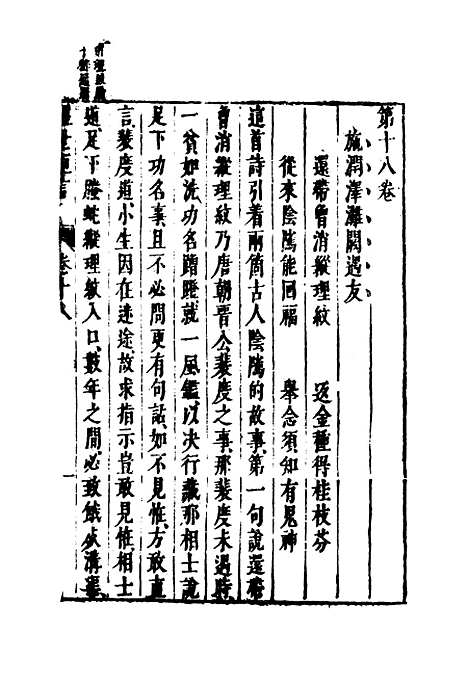 第十八卷
施潤澤灘闕遇友
還帶曾消縱理紋　返金種得桂枝芬
從來陰隲能回福　舉念須知有鬼神
這首詩引着兩箇古人陰隲的故事、第一句說還帶
曾消縱理紋、乃唐朝晉公裴度之事、那裴度未遇時、
一貧如洗、功名蹭蹬、就一風鑑、以決行藏、那相士說、
足下功名事、且不必問、更有句話、如不見恠、方敢直
言、裴度道、小生因在迷途、故求指示、豈敢見恠、相士
道、足下螣蛇縱理紋入口、數年之間、必致餓死溝渠、
卷十八
一